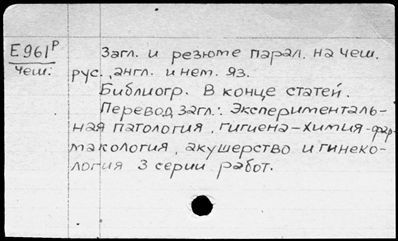 Е961р Загл. и резюме парал. на чеш.
чеш: рус., англ. и нем. яз.
Библиогр. в конце статей.
Перевод загл.: Эксперименталь-
ная патология, гигиена-химия-фар-
макология, акушерство и гинеко-
логия 3 серии работ.